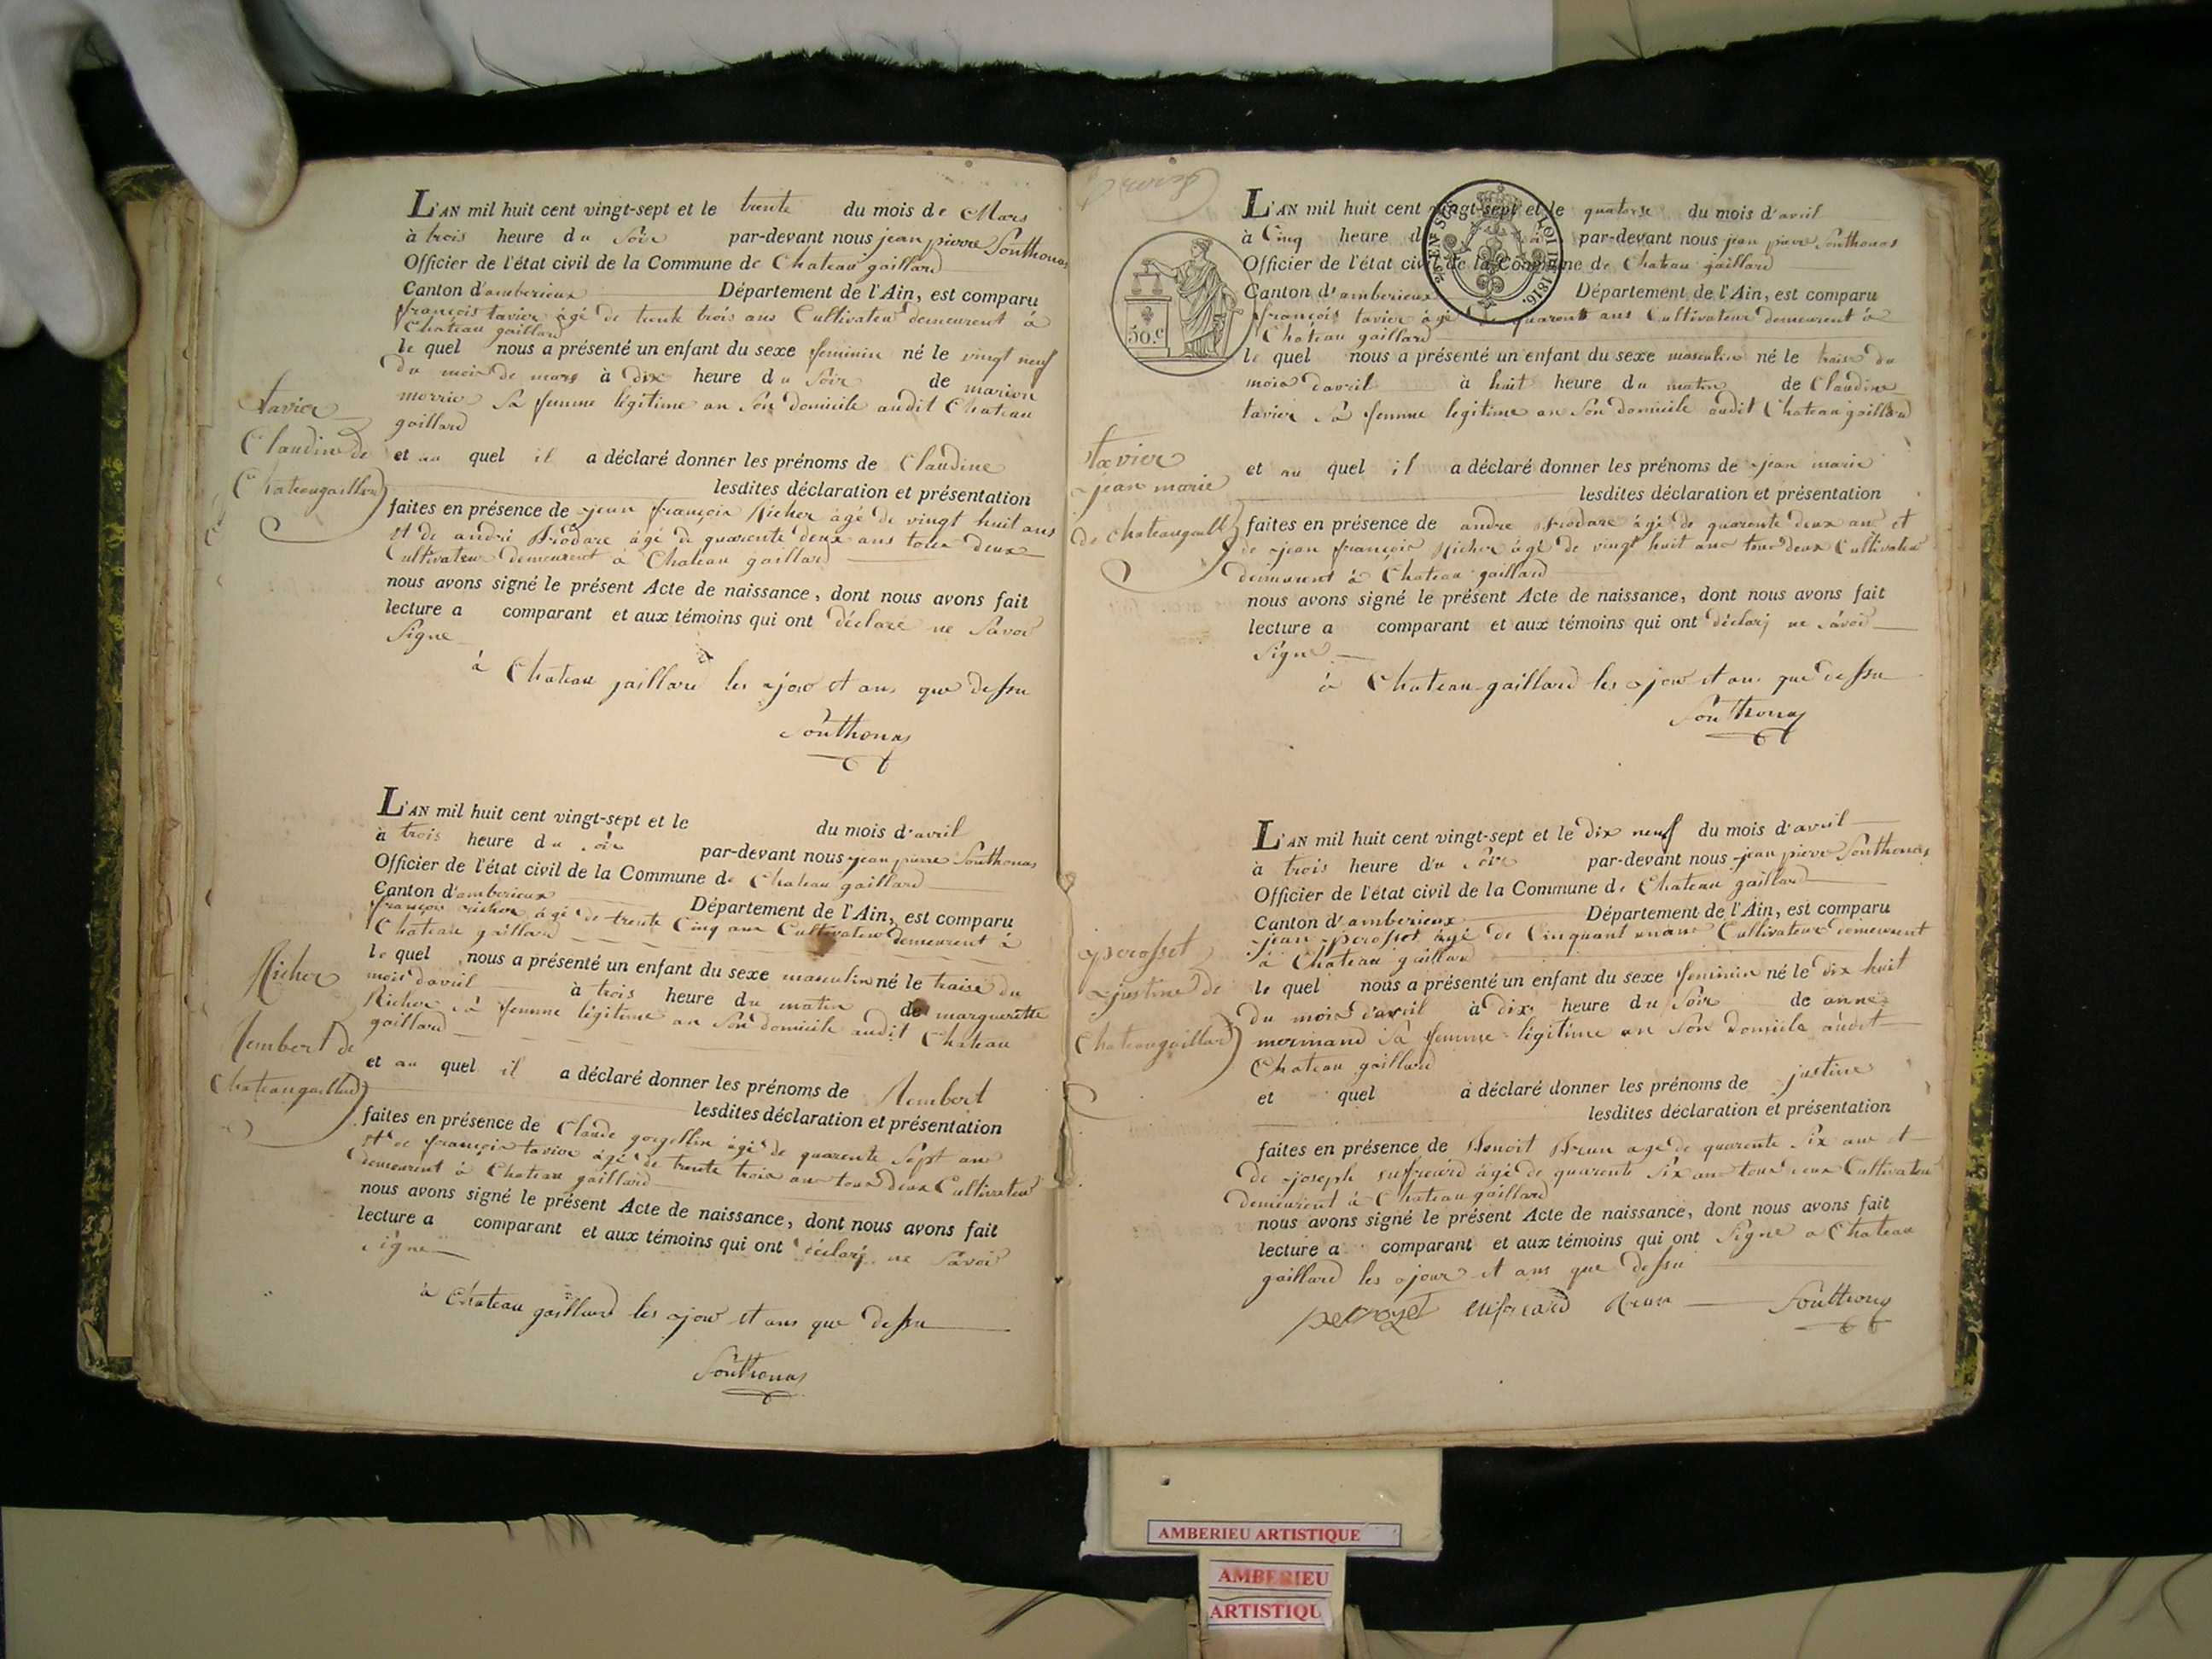 L'AN mil huit cent vingt-sept et le trente du mois de Mars
à trois heure du Soir par-devant nous jean pierre Southonas
Officier de l'état civil de la Commune de Chateau gaillard
Canton d'amberieux Département de l'Ain, est comparu
françois tavier agé de trente trois ans Cultivateur demeurent à
Chateau gaillard
le quel nous a présenté un enfant du sexe feminin né le vingt neuf
du mois de mars à dix heure du Soir de marion
morrier Sa femme légitime an Son domicile audit Chateau
gaillard
tavier
Claudine de
Chateaugaillard
et au quel il a déclaré donner les prénoms de Claudine
lesdites déclaration et présentation
faites en présence de jean françois Richer agé de vingt huit ans
et de andré Brodare agé de quarente deux ans tous deux
Cultivateur demeurent à Chateau gaillard
nous avons signé le présent Acte de naissance, dont nous avons fait
lecture a comparant et aux témoins qui ont déclaré ne Savoir
Signe
à Chateau gaillard les jour et ans que dessu
Southonas
L'AN mil huit cent vingt-sept et le du mois d'avril
à trois heure du Soir par-devant nous jean pierre Southonas
Officier de l'état civil de la Commune de Chateau gaillard
Canton d'amberieux Département de l'Ain, est comparu
françois richer agé de trente Cinq ans Cultivateur demeurent à
Chateau gaillard
le quel nous a présenté un enfant du sexe masculin né le traise du
mois d'avril à trois heure du matin de margueritte
Richer Sa femme légitime an Son domicile audit Chateau
gaillard
Richer
Humbert de
Chateaugaillard
et au quel il a déclaré donner les prénoms de Humbert
lesdites déclaration et présentation
faites en présence de Claude agé de quarente Sept ans
et de françois tavier agé de trente trois ans tous deux Cultivateur
demeurent à Chateau gaillard
nous avons signé le présent Acte de naissance, dont nous avons fait
lecture a comparant et aux témoins qui ont déclaré ne Savoir
Signe
à Chateau gaillard les jour et ans que dessu
Southonas
L'AN mil huit cent vingt-sept et le quatorse du mois d'avril
à Cinq heure d par-devant nous jean pierre Southonas
Officier de l'état civil de la Commune de Chateau gaillard
Canton d'amberieux Département de l'Ain, est comparu
50.c
LOI DE 1816.
EN SUS
françois tavier agé de quarente ans Cultivateur demeurent à
Chateau gaillard
le quel nous a présenté un enfant du sexe masculin né le traise du
mois d'avril à huit heure du matin de Claudine
tavier Sa femme legitime an Son domicile audit Chateau gaillard
tavier
jean marie
de chateaugaill
et au quel il a déclaré donner les prénoms de jean marie
lesdites déclaration et présentation
faites en présence de andre Brodare agé de quarente deux ans et
de jean françois Richer agé de vingt huit ans tous deux Cultivateur
demeurent à Chateau gaillard
nous avons signé le présent Acte de naissance, dont nous avons fait
lecture a comparant et aux témoins qui ont déclaré ne Savoir
Signe
à Chateau gaillard les jour et ans que dessu
Southonas
L'AN mil huit cent vingt-sept et le dix neuf du mois d'avril
à trois heure du Soir par-devant nous jean pierre Southonas
Officier de l'état civil de la Commune de Chateau gaillard
Canton d'amberieux Département de l'Ain, est comparu
jean perosset agé de Cinquant unans Cultivateur demeurent
à Chateau gaillard
le quel nous a présenté un enfant du sexe feminin né le dix huit
du mois d'avril à dix heure du Soir de anne
mermand Sa femme légitime an Son domicile audit
Chateau gaillard
perosset
justine de
Chateaugaillard
et quel a déclaré donner les prénoms de justine
lesdites déclaration et présentation
faites en présence de Benoit Brun agé de quarente Six ans et
de joseph agé de quarente Six ans tous deux Cultivateur
demeurent à Chateau gaillard
nous avons signé le présent Acte de naissance, dont nous avons fait
lecture a comparant et aux témoins qui ont Signe a Chateau
gaillard les jour et ans que dessu
perrozet Brun Southonas
AMBERIEU ARTISTIQUE
AMBERIEU
ARTISTIQU